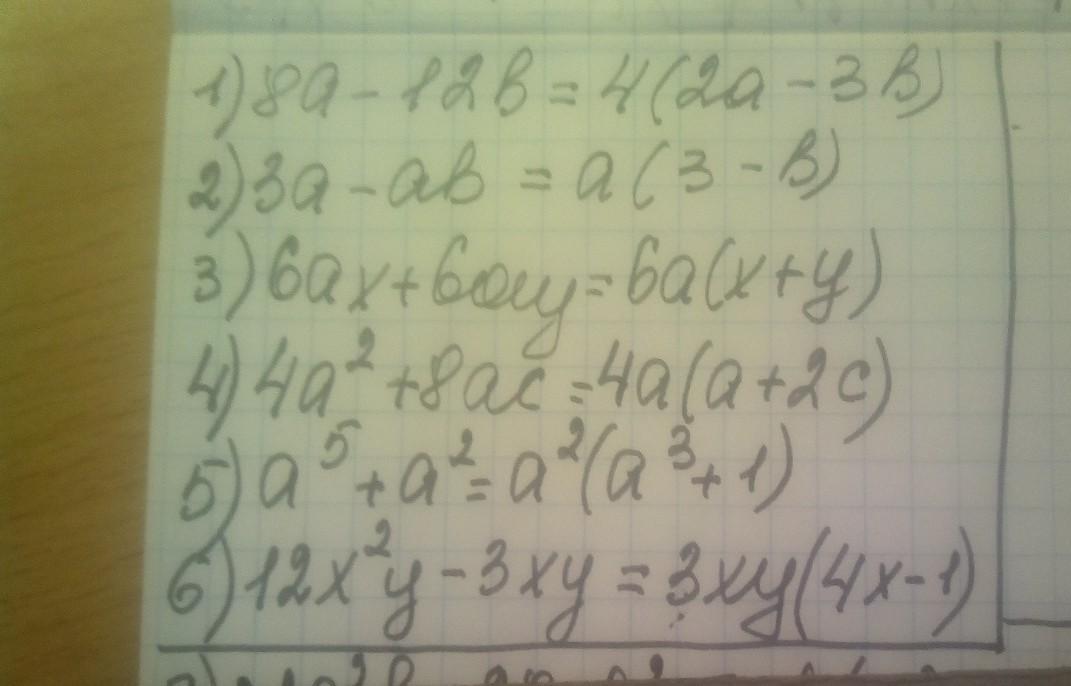 1) 8a - 12b = 4(2a - 3b)
2) 3a - ab = a(3 - b)
3) 6ax + 6ay = 6a(x + y)
4) 4a² + 8ac = 4a(a + 2c)
5) a⁵ + a² = a²(a³ + 1)
6) 12x²y - 3xy = 3xy(4x - 1)